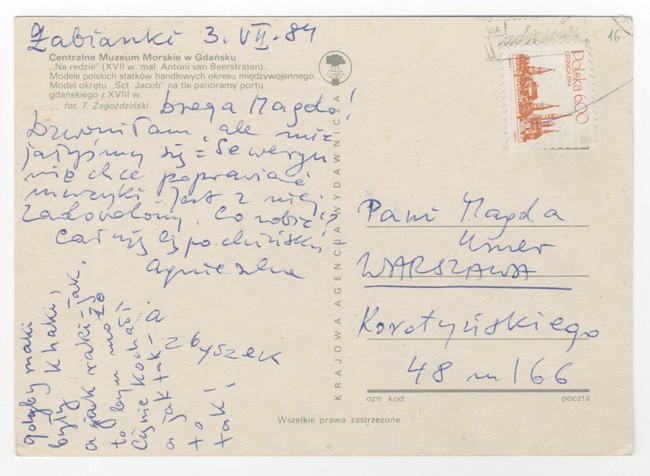 Żabianki 3.VII.84
Centralne Muzeum Morskie w Gdańsku
„Na redzie” (XVII w. mal. Antoni van Beerstraten).
Modele polskich statków handlowych okresu międzywojennego.
Model okrętu „Sct. Jacob” na tle panoramy portu
gdańskiego z XVIII w.
fot. T. Zagoździński
Droga Magdo!
Dzwoniłam, ale mi
się = Seweryn
nie chce poprawiać
muzyki. Jest z niej
zadowolony. Co robić?
Całuję Cię po chińsku
Agnieszka
a
zbyszek
gdyby maki
były khaki,
a jak raki-jak.
to bym może
Ciebie kochał
a jak tak-
to
tak!
KRAJOWA AGENCJA WYDAWNICZA
Polska 600
16
Pani Magda
Umer
WARSZAWA
Korotyńskiego
48 m/66
ozn. kod. poczta
Wszelkie prawa zastrzeżone